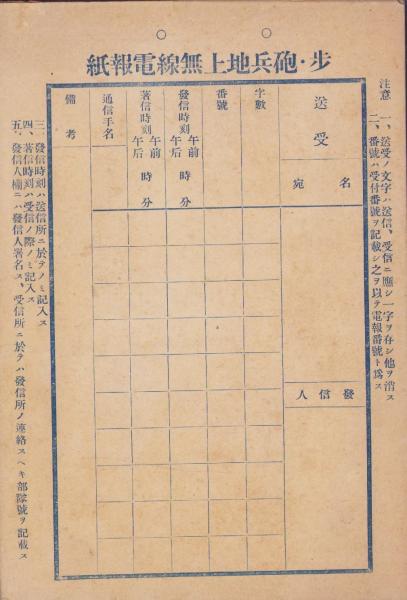 步・砲兵地上無線電報紙
注意
一、送受ノ文字ハ送信、受信ニ應シ一字ヲ存シ他ヲ消ス
二、番號ハ受付番號ヲ記載シ之ヲ以テ電報番號ト爲ス
送受
名宛
發信人
字數
番號
發信時刻 午前午后 時分
著信時刻 午前午后 時分
通信手名
備考
三、發信時刻ハ送信所ニ於テノミ記入ス
四、著信時刻ハ受信ノ際ノミ記入ス
五、發信人欄ニハ發信人署名ス、受信所ニ於テハ發信所ノ連絡スヘキ部隊號ヲ記載ス